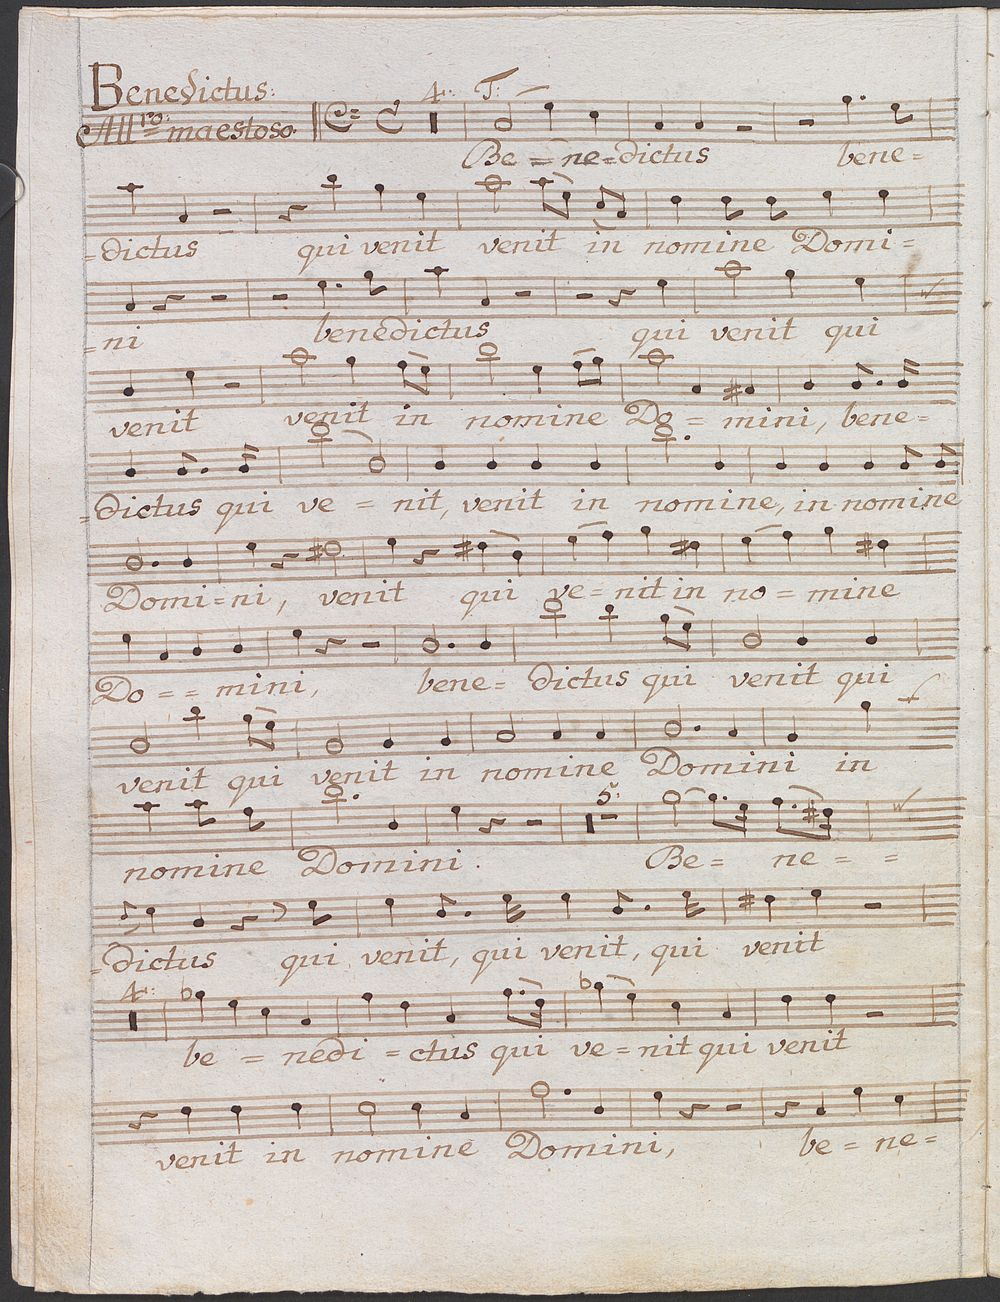 Benedictus:
All.ro maestoso.
4. T:
Be = ne = dictus bene =
= dictus qui venit venit in nomine Domi =
= ni benedictus qui venit qui
venit venit in nomine Do = mini, bene =
= dictus qui ve = nit, venit in nomine, in nomine
Domi = ni, venit qui ve = nit in no = mine
Do = = mini, bene = dictus qui venit qui
venit qui venit in nomine Domini in
5.
nomine Domini. Be = ne = =
= dictus qui venit, qui venit, qui venit
4.
be = nedi = ctus qui ve = nit qui venit
venit in nomine Domini, be = ne =